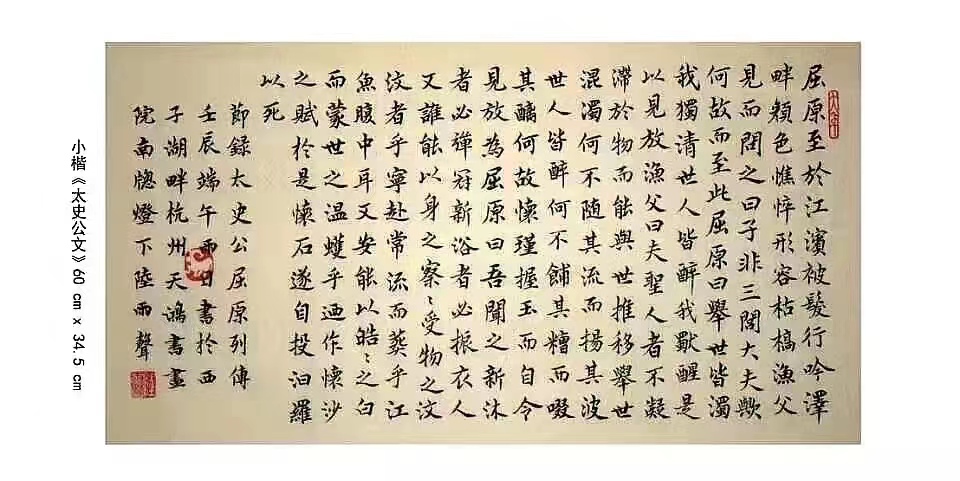 屈原至於江濱被髮行吟澤
畔顏色憔悴形容枯槁漁父
見而問之曰子非三閭大夫歟
何故而至此屈原曰舉世皆濁
我獨清世人皆醉我獨醒是
以見放漁父曰夫聖人者不凝
滯於物而能與世推移舉世
混濁何不随其流而揚其波
世人皆醉何不餔其糟而啜
其醨何故懷瑾握玉而自令
見放為屈原曰吾聞之新沐
者必彈冠新浴者必振衣人
又誰能以身之察〻受物之汶
汶者乎寧赴常流而葬乎江
魚腹中耳又安能以皓〻之白
而蒙世之温蠖乎迺作懷沙
之賦於是懷石遂自投汨羅
以死
節錄太史公屈原列傳
壬辰端午雨日書於西
子湖畔杭州天鴻書畫
院南牕燈下陸雨聲
小楷《太史公文》60 cm x 34.5 cm